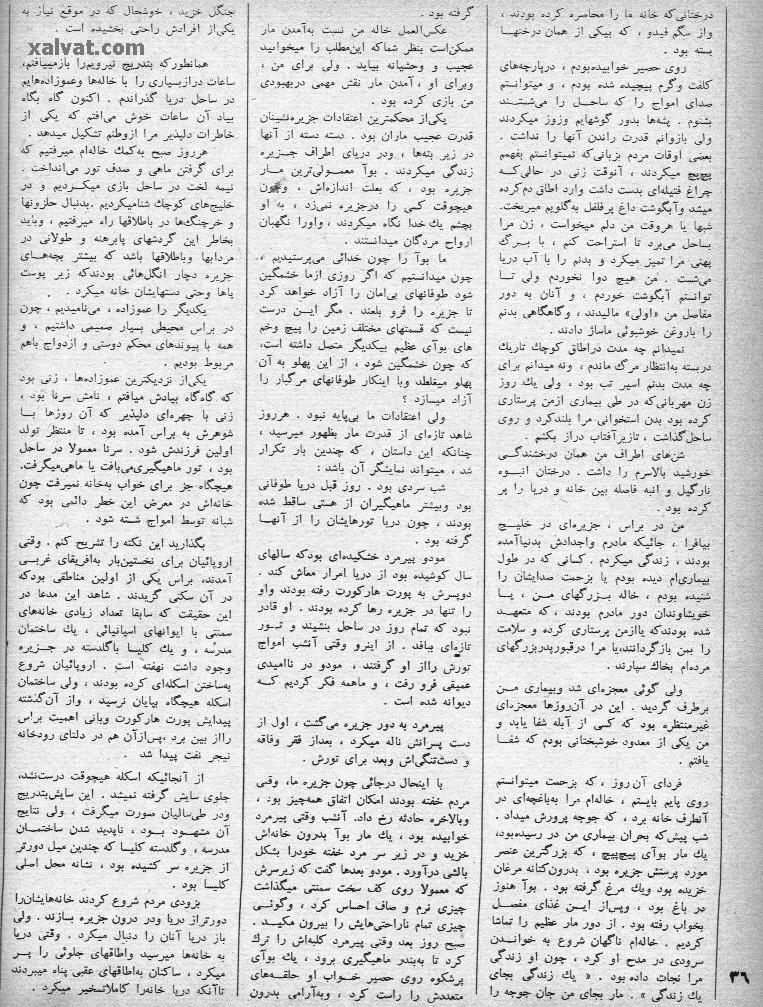 درختانی‌که خانه ما را محاصره کرده بودند ،
واز سگم فیدو ، که بیکی از همان درختهـا
بسته بود .
روی حصیر خوابیده‌بودم ، درپارچه‌های
کلفت وگرم پیچیده شده بودم ، و میتوانستم
صدای امواج را که ساحـل را می‌شستـنـد
بشنوم . پشه‌ها بدور گوشهایم وزوز میکردند
ولی بازوانم قدرت راندن آنها را نداشت .
بعضی اوقات مردم بزبانی‌که نمیتوانستم بفهمم
پچ‌پچ میکردند ، آنوقت زنی در حالی‌کـه
چراغ فتیله‌ای بدست داشت وارد اطاق دم‌کرده
میشد وآبگوشت داغ پرفلفل به‌گلویم میریخت.
شبها یا هروقت من دلم میخواست ، زن مرا
بساحل می‌برد تا استراحت کنم ، با بـرگ
پهنی مرا تمیز میکرد و بدنم را با آب دریا
می‌شست . من هیچ دوا نخوردم ولی تـا
توانستم آبگوشت خوردم ، و آنان به دور
مفاصل من «اولی» مالیدند ، وگاهگاهی بدنم
را باروغن خوشبوئی ماساژ دادند .
نمیدانم چه مدت دراطاق کوچك تاریك
دربسته به‌انتظار مرگ ماندم ، ونه میدانم برای
چه مدت بدنم اسیر تب بود ، ولی یك روز
زن مهربانی‌که در طی بیماری ازمن پرستاری
کرده بود بدن استخوانی مرا بلندکرد و روی
ساحل‌گذاشت ، تازیرآفتاب دراز بکشم .
شن‌های اطراف من همان درخشندگـی
خورشید بالاسرم را داشت . درختان انبـوه
نارگیل و انبه فاصله بین خانه و دریا را پر
کرده بود .
من در براس ، جزیره‌ای در خلیـج
بیافرا ، جائیکه مادرم واجدادش بدنیاآمده
بودند ، زندگی میکردم . کسانی که در طول
بیماری‌ام دیده بودم یا بزحمت صدایشان را
شنیده بودم ، خاله بـزرگهای مـن ، یـا
خویشاوندان دور مادرم بودند ، که متعهـد
شده بودندکه یاازمن پرستاری کرده و سلامت
را بمن بازگردانند،یا مرا درقبورپدربزرگهای
مرده‌ام بخاك سپارند .
ولی گوئی معجزه‌ای شد وبیماری مـن
برطرف گردید . این در آن‌روزها معجزه‌ای
غیرمنتظره بود که کسی از آبله شفا یابد و
من یکی از معدود خوشبختانی بودم که شفـا
یافتم .
فردای آن روز ، که بزحمت میتوانستم
روی پایم بایستم ، خاله‌ام مرا به‌باغچه‌ای در
آنطرف خانه برد ، که جوجه پرورش میداد .
شب پیش‌که بحران بیماری من در رسیده‌بود،
یك مار بوآی پیچ‌پیچ ، که بزرگترین عنصر
مورد پرستش جزیره بود ، بدرون‌کتانه مرغان
خزیده بود ویك مرغ گرفته بود . بوآ هنوز
در باغ بود ، وپس‌از ایـن غذای مفصـل
بخواب رفته بود . از دور مار عظیم را تماشا
کردیم . خاله‌ام ناگهان شروع به خوانـدن
سرودی در مدح او کرد ، چون او زندگی
مرا نجات داده بود . « یك زندگی بجای
یك زندگی » . مار بجای من جان جوجه را
گرفته بود .
عکس‌العمل خاله من نسبت به‌آمدن مار
ممکن‌است بنظر شماکه این‌مطلب را میخوانید
عجیب و وحشیانه بیاید . ولی برای من ،
وبرای او ، آمدن مار نقش مهمی دربهبودی
من بازی کرده بود .
یکی‌از محکمترین اعتقادات جزیره‌نشینان
قدرت عجیب ماران بود . دسته دسته از آنها
در زیر بته‌ها ، ودر دریای اطراف جـزیره
زندگی میکردند . بوآ معمـولی‌ترین مـار
جزیره بود ، که بعلت اندازه‌اش ، وچون
هیچوقت کسی را درجزیره نمی‌زد ، به او
بچشم یك خدا نگاه میکردند ، واورا نگهبان
ارواح مردگان میدانستند .
ما بوآ را چون خدائی می‌پرستیدیم ،
چون میدانستیم که اگر روزی ازما خشمگین
شود طوفانهای بی‌امان را آزاد خواهد کرد
تا جزیره را فرو بلعند . مگر ایـن درست
نیست که قسمتهای مختلف زمین را پیچ وخم
های بوآی عظیم بیکدیگر متصل داشته است،
که چون خشمگین شود ، از این پهلو به آن
پهلو میغلطد وبا اینکار طوفانهای مرگبار را
آزاد میسازد ؟
ولی اعتقادات ما بی‌پایه نبود . هرروز
شاهد تازه‌ای از قدرت مار بظهور میرسید ،
چنانکه این داستان ، که چندین بار تکرار
شد ، میتواند نمایشگر آن باشد :
شب سردی بود . روز قبل دریا طوفانی
بود وبیشتر ماهیگیران از هستی ساقط شده
بودند ، چون دریا تورهایشان را از آنهـا
گرفته بود .
مودو پیرمرد خشکیده‌ای بودکه سالهای
سال کوشیده بود از دریا امرار معاش کند .
دوپسرش به پورت هارکورت رفته بودند واو
را تنها در جزیره رها کرده بودند . او قادر
نبود که تمام روز در ساحل بنشیند و تـور
تازه‌ای ببافد . از اینرو وقتی آنشب امواج
تورش رااز او گرفتند ، مودو در ناامیدی
عمیقی فرو رفت ، و ماهمه فکر کردیم کـه
دیوانه شده است .
پیرمرد به دور جزیره می‌گشت ، اول از
دست پسرانش ناله میکرد ، بعداز فقر وفاقه
و دست‌تنگی‌اش وبعد برای تورش .
با اینحال درجائی چون جزیره ما، وقتی
مردم خفته بودند امکان اتفاق همه‌چیز بود ،
وبالاخره حادثه رخ داد. آنشب وقتی پیرمرد
خوابیده بود ، یك مار بوآ بدرون خانه‌اش
خزید و در زیر سر مرد خفته خودرا بشکل
بالشی درآورد . مودو بعدها گفت که زیرسرش
که معمولا روی کف سخت سمنتی میگذاشت
چیزی نرم و صاف احساس کرد ، وگوئـی
چیزی تمام ناراحتی‌هایش را بیرون مکیـد .
صبح روز بعد وقتی پیرمرد کلبه‌اش را ترك
کرد تا به‌بندر ماهیگیری برود ، یك بوآی
پرشکوه روی حصیر خـواب او حلقـه‌هـای
متعددش را راست کرد ، وبه‌آرامی بدرون
جنگل خزید ، خوشحال که در موقع نیاز به
یکی‌از افرادش راحتی بخشیده است .
xalvat.com
همانطورکه بتدریج نیرویم‌را بازمییافتم،
ساعات درازبسیاری را با خاله‌ها وعموزاده‌هایم
در ساحل دریا گذراندم . اکنون گاه بگاه
بیاد آن ساعات خوش می‌افتم که یکی از
خاطرات دلپذیر مرا ازوطنم تشکیل میدهد .
هرروز صبح به‌کمك خاله‌ام میرفتیم که
برای گرفتن ماهی و صدف تور می‌انداخت .
نیمه لخت در ساحل بازی میکـردیم و در
خلیج‌های کوچك شنامیکردیم .بدنبال حلزونها
و خرچنگ‌ها در باطلاقها راه میرفتیم ، وباید
بخاطر این گردشهای پابرهنه و طولانی در
مردابها وباطلاقها باشد که بیشتر بچه‌هـای
جزیره دچار انگل‌هائی بودندکه زیر پوست
پاها وحتی دستهایشان خانه میکرد .
یکدیگر را عموزاده ، می‌نامیدیم ، چون
در براس محیطی بسیار صمیمی داشتیم ، و
همه با پیوندهای محکم دوستی و ازدواج باهم
مربوط بودیم .
یکی‌از نزدیکترین عموزاده‌ها ، زنی بود
که گاه‌گاه بیادش میافتم ، نامش سرنا بود ،
زنی با چهره‌ای دلپذیر که آن روزها بـا
شوهرش به براس آمده بود ، تا منتظر تولد
اولین فرزندش شود . سرنا معمولا در ساحل
بود ، تور ماهیگیری‌می‌بافت یا ماهی‌میگرفت.
هیچگاه جز برای خواب به‌خانه نمیرفت چون
خانه‌اش در معرض این خطر دائمی بود که
شبانه توسط امواج شسته شود .
بگذارید این نکته را تشریح کنم . وقتی
اروپائیان برای نخستین‌بار به‌افریقای غربـی
آمدند، براس یکی از اولین مناطقی بودکه
در آن سکنی گزیدند . شاهد این مدعا در
این حقیقت که سابقا تعداد زیادی خانه‌های
سمنتی با ایوانهای اسپانیائی ، یك ساختمان
مدرسه ، و یك کلیسا باگلدسته در جـزیره
وجود داشت نهفته است . اروپائیان شروع
به‌ساختن اسکله‌ای کرده بودند ، ولی ساختمان
اسکله هیچگاه بپایان نرسید ، واز آن‌گذشته
پیدایش پورت هارکورت وبانی اهمیت براس
رااز بین برد ،پس‌ازآن هم در دلتای رودخانه
نیجر نفت پیدا شد .
از آنجائیکه اسکله هیچوقت درست‌نشد،
جلوی سایش گرفته نمیشد . این سایش‌بتدریج
ودر طی‌سالیان صورت میگرفت ، ولی نتایج
آن مشهـود بـود ، ناپدید شدن ساختمـان
مدرسه ، وگلدسته کلیسا که چندین میل دورتر
از جزیره سر کشیده بود ، نشانه محل اصلی
کلیسا بود .
بزودی مردم شروع کردند خانه‌هایشان‌را
دورتراز دریا ودر درون جزیره بسازند . ولی
باز دریا آنان را دنبال میکرد . وقتی دریا
به خانه‌ها میرسید واطاقهای جلوئی را پـر
میکرد ، ساکنان به‌اطاقهای عقبی پناه میبردند
تاآنکه دریا خانه‌را کاملاتسخیر میکرد .
۳۶